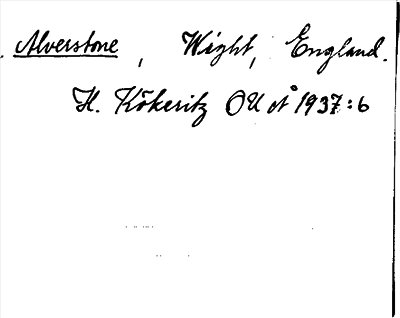 Alverstone, Wight, England.
H. Kökeritz OUÅ 1937:6